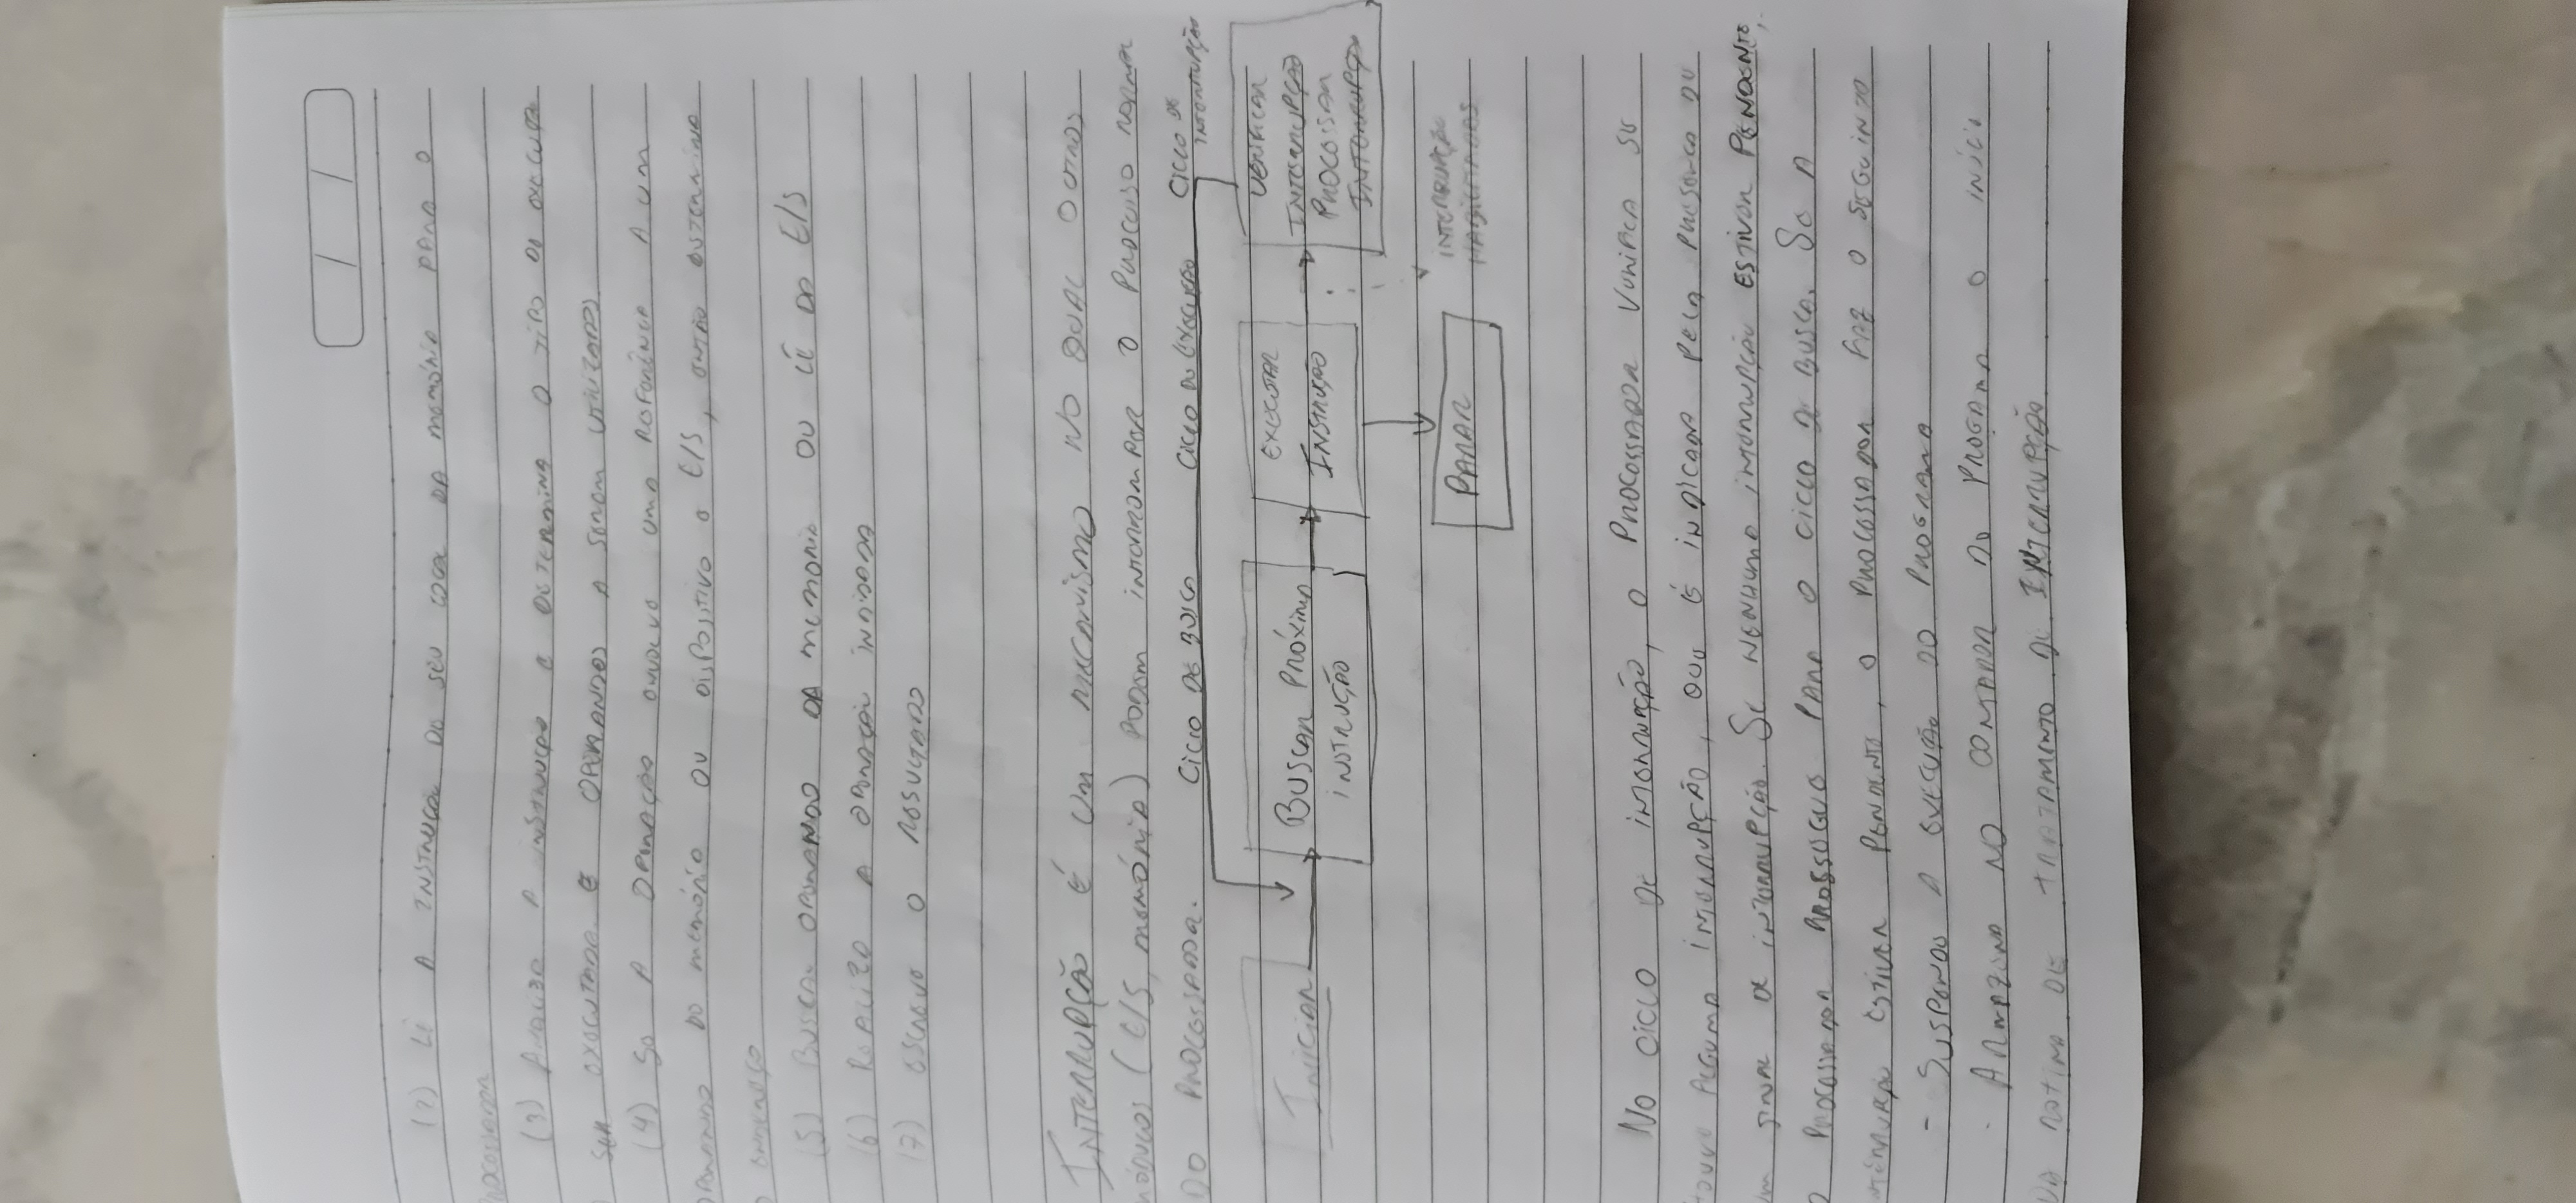 (2) Lê A INSTRUÇÃO DO SEU LOCAL DA MEMÓRIA PARA O
PROCESSADOR
(3) ANALISA A INSTRUÇÃO E DETERMINA O TIPO DE
SER EXECUTADA E OPERANDOS A SEREM UTILIZADOS
(4) SE A OPERAÇÃO ENVOLVE UMA REFERÊNCIA A UM
OPERANDO DE MEMÓRIA OU DISPOSITIVO E/S, ENTÃO DETERMINA
O ENDEREÇO
(5) BUSCA OPERANDO DA MEMORIA OU LÊ DA E/S
(6) REALIZA A OPERAÇÃO INDICADA
(7) ESCREVE O RESULTADO
INTERRUPÇÃO É UM MECANISMO NO QUAL OUTROS
MÓDULOS (E/S, MEMÓRIA) PODEM INTERROMPER O PROCESSO NORMAL
DO PROCESSADOR.
CICLO DE BUSCA CICLO DE EXECUÇÃO CICLO DE INTERRUPÇÃO
INICIAR
BUSCAR PRÓXIMA
INSTRUÇÃO
EXECUTAR
INSTRUÇÃO
VERIFICAR
INTERRUPÇÃO
PROCESSAR
INTERRUPÇÃO
PARAR
INTERRUPÇÃO
HABILITADAS
NO CICLO DE INTERRUPÇÃO, O PROCESSADOR VERIFICA SE
HOUVE ALGUMA INTERRUPÇÃO, QUE É INDICADA PELA PRESENÇA DE
UM SINAL DE INTERRUPÇÃO. SE NENHUMA INTERRUPÇÃO ESTIVER PENDENTE,
O PROCESSADOR PROSSEGUE PARA O CICLO DE BUSCA. SE A
INTERRUPÇÃO ESTIVER PENDENTE, O PROCESSADOR FAZ O SEGUINTE
- SUSPENDE A EXECUÇÃO DO PROGRAMA
- ARMAZENA NO CONTADOR DO PROGAMA O INÍCIO
DA ROTINA DE TRATAMENTO DE INTERRUPÇÃO